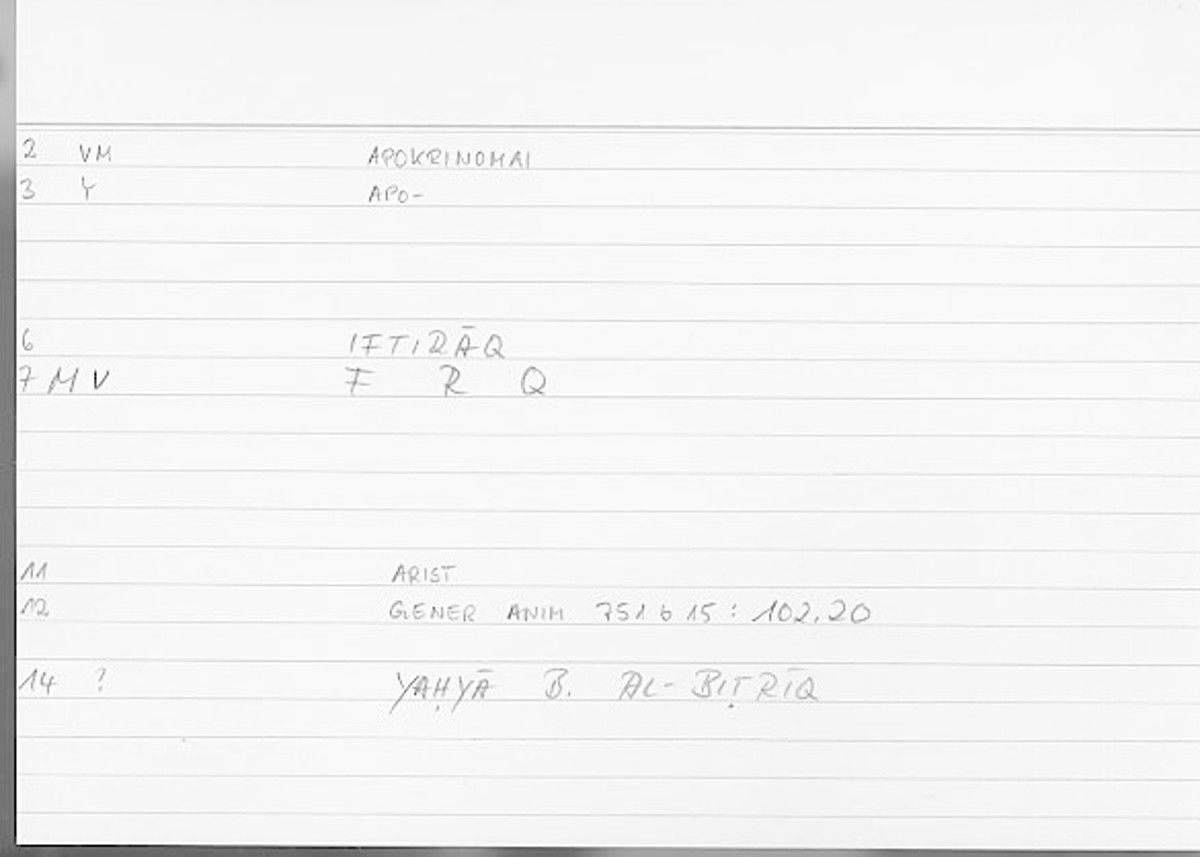 2 VM APOKRINOMAI
3 Y APO-
6 IFTIRĀQ
7 M V F R Q
11 ARIST
12 GENER ANIM 751 b 15 : 102,20
14 ? YAḤYĀ B. AL-BIṬRĪQ